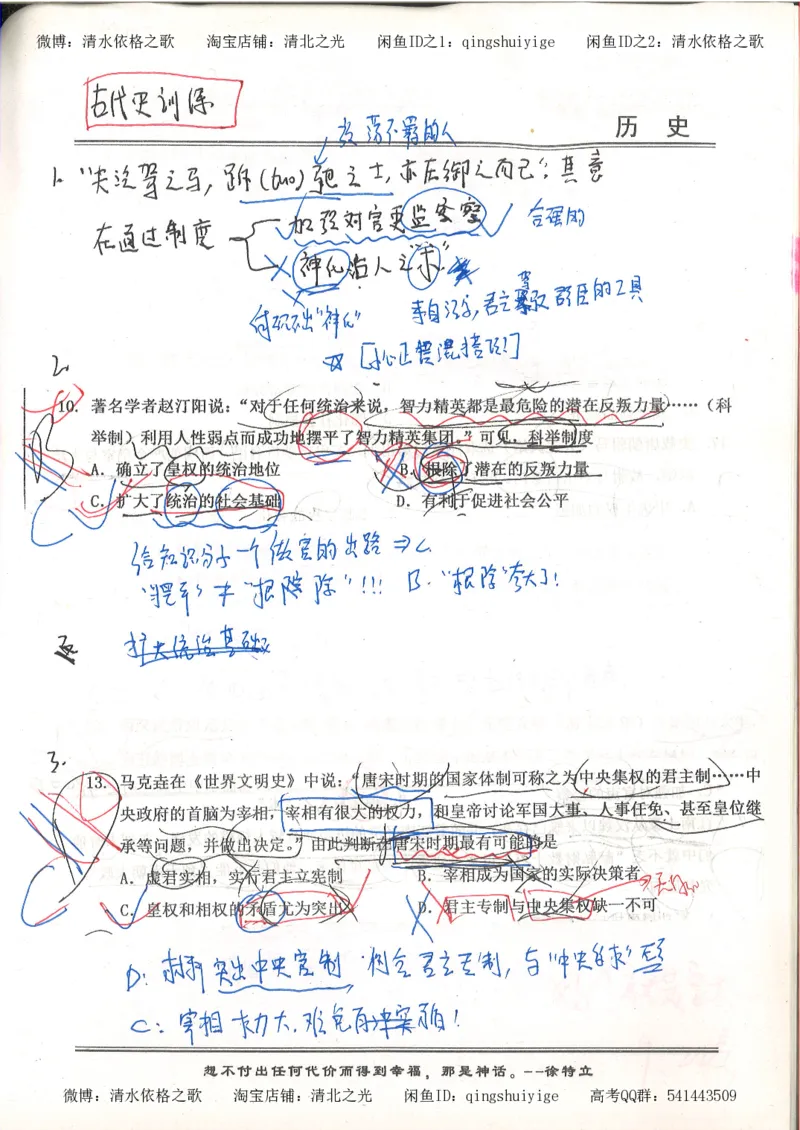 微博：清水依格之歌 淘宝店铺：清北之光 闲鱼ID之1：qingshuiyige 闲鱼ID之2：清水依格之歌
古代史训练
历 史
放荡不羁的人
1. “夫泛驾之马，跅(tuò)弛之士，亦在御之而已”：其意
在通过制度
加强对官吏监察 合强的
神化治人之“术”
何砍出“神化”
10. 著名学者赵汀阳说：“对于任何统治来说，智力精英都是最危险的潜在反叛力量……（科
举制）利用人性弱点而成功地摆平了智力精英集团。”可见，科举制度
A．确立了皇权的统治地位 B．根除了潜在的反叛力量
C．扩大了统治的社会基础 D．有利于促进社会公平
给知识分子一个做官的出路⇒C
“摆平”≠“根除”!!! B．“根除”夸大了!
扩大统治基础
3.
13. 马克垚在《世界文明史》中说：“唐宋时期的国家体制可称之为中央集权的君主制……中
央政府的首脑为宰相，宰相有很大的权力，和皇帝讨论军国大事、人事任免、甚至皇位继
承等问题，并做出决定。”由此判断在唐宋时期最有可能的是
A．虚君实相，实行君主立宪制 B．宰相成为国家的实际决策者
C．皇权和相权的矛盾尤为突出 D．君主专制与中央集权缺一不可
C：宰相权力大，难免有冲突!
想不付出任何代价而得到幸福，那是神话。--徐特立
微博：清水依格之歌 淘宝店铺：清北之光 闲鱼ID：qingshuiyige 高考QQ群：541443509